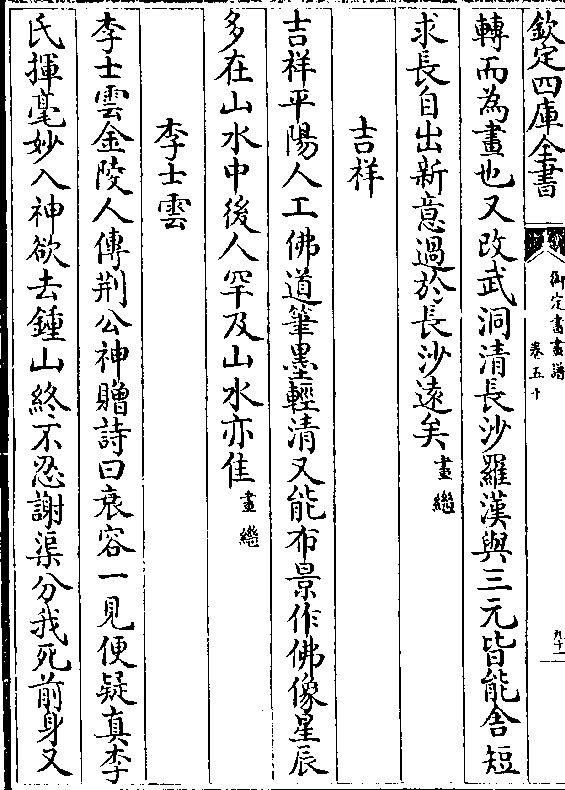 欽定四庫全書
御定書畫譜
卷五十
九十一
轉而為畫也又改武洞清長沙羅漢與三元皆能舍短
求長自出新意過於長沙遠矣畫繼
吉祥
吉祥平陽人工佛道筆墨輕清又能布景作佛像星辰
多在山水中後人罕及山水亦佳畫繼
李士雲
李士雲金陵人傳荆公神贈詩曰衰容一見便疑真李
氏揮毫妙入神欲去鍾山終不忍謝渠分我死前身又